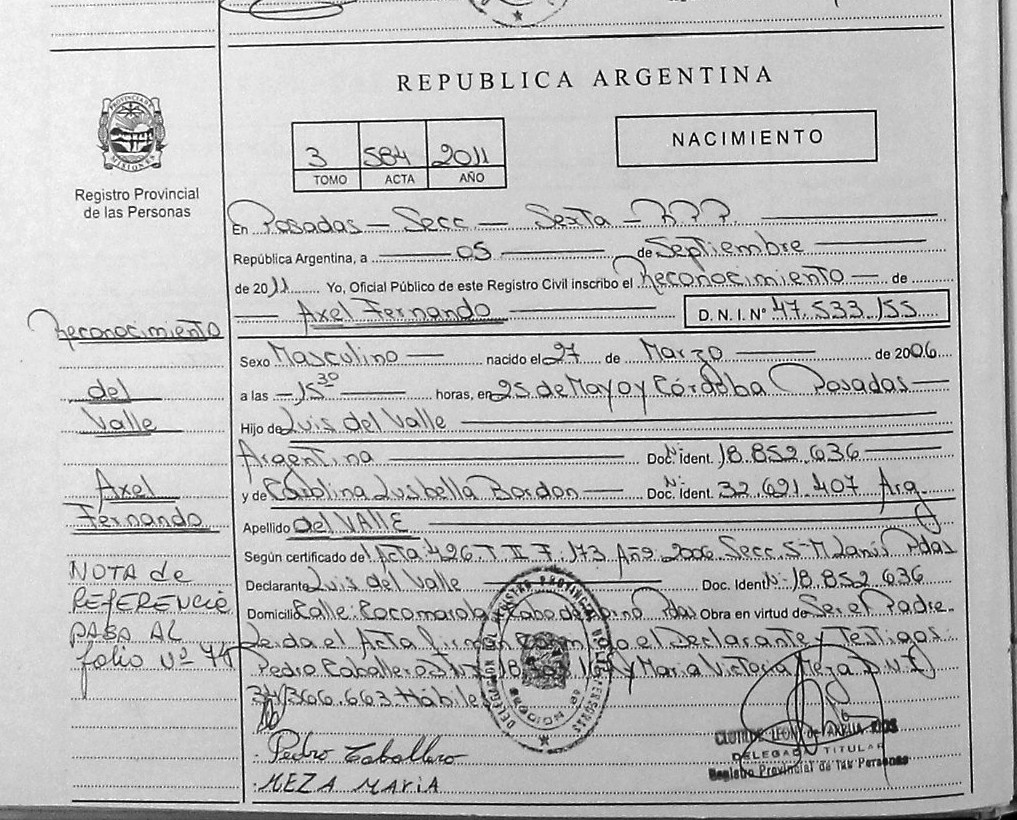 REPUBLICA ARGENTINA
3 584 2011
TOMO ACTA AÑO
NACIMIENTO
PROVINCIA DE MISIONES
Registro Provincial
de las Personas
En Posadas — Secc — Sexta — R.P.P.
República Argentina, a 05 de Septiembre
de 2011 Yo, Oficial Público de este Registro Civil inscribo el Reconocimiento de
Axel Fernando D.N.I. Nº 47.533.155
Sexo Masculino nacido el 27 de Marzo de 2006
a las 15³⁰ horas, en 25 de Mayo y Córdoba Posadas
Hijo de Luis del Valle
Argentina Doc. Ident. Nº 18.852.636
y de Carolina Bordon Doc. Ident. Nº 32.691.407 Arg
Apellido del VALLE
Según certificado de Acta 426 T II F 173 Año 2006 Secc. 5 Pdas
Declarante Luis del Valle Doc. Ident. Nº 18.852.636
Domicilio Calle Cocomarola Pdas Obra en virtud de Ser el Padre.
Leida el Acta el Declarante y Testigos
Pedro Caballero y Maria Victoria Meza D.N.I.
34.366.663 Hábiles
Pedro Caballero
MEZA MARIA
Reconocimiento
del
Valle
Axel
Fernando
NOTA de
REFERENCIA
PASA AL
folio Nº
DELEGACION DEL REGISTRO PROVINCIAL DE LAS PERSONAS
CLOTILDE LEON de RIOS
DELEGADA TITULAR
Registro Provincial de las Personas